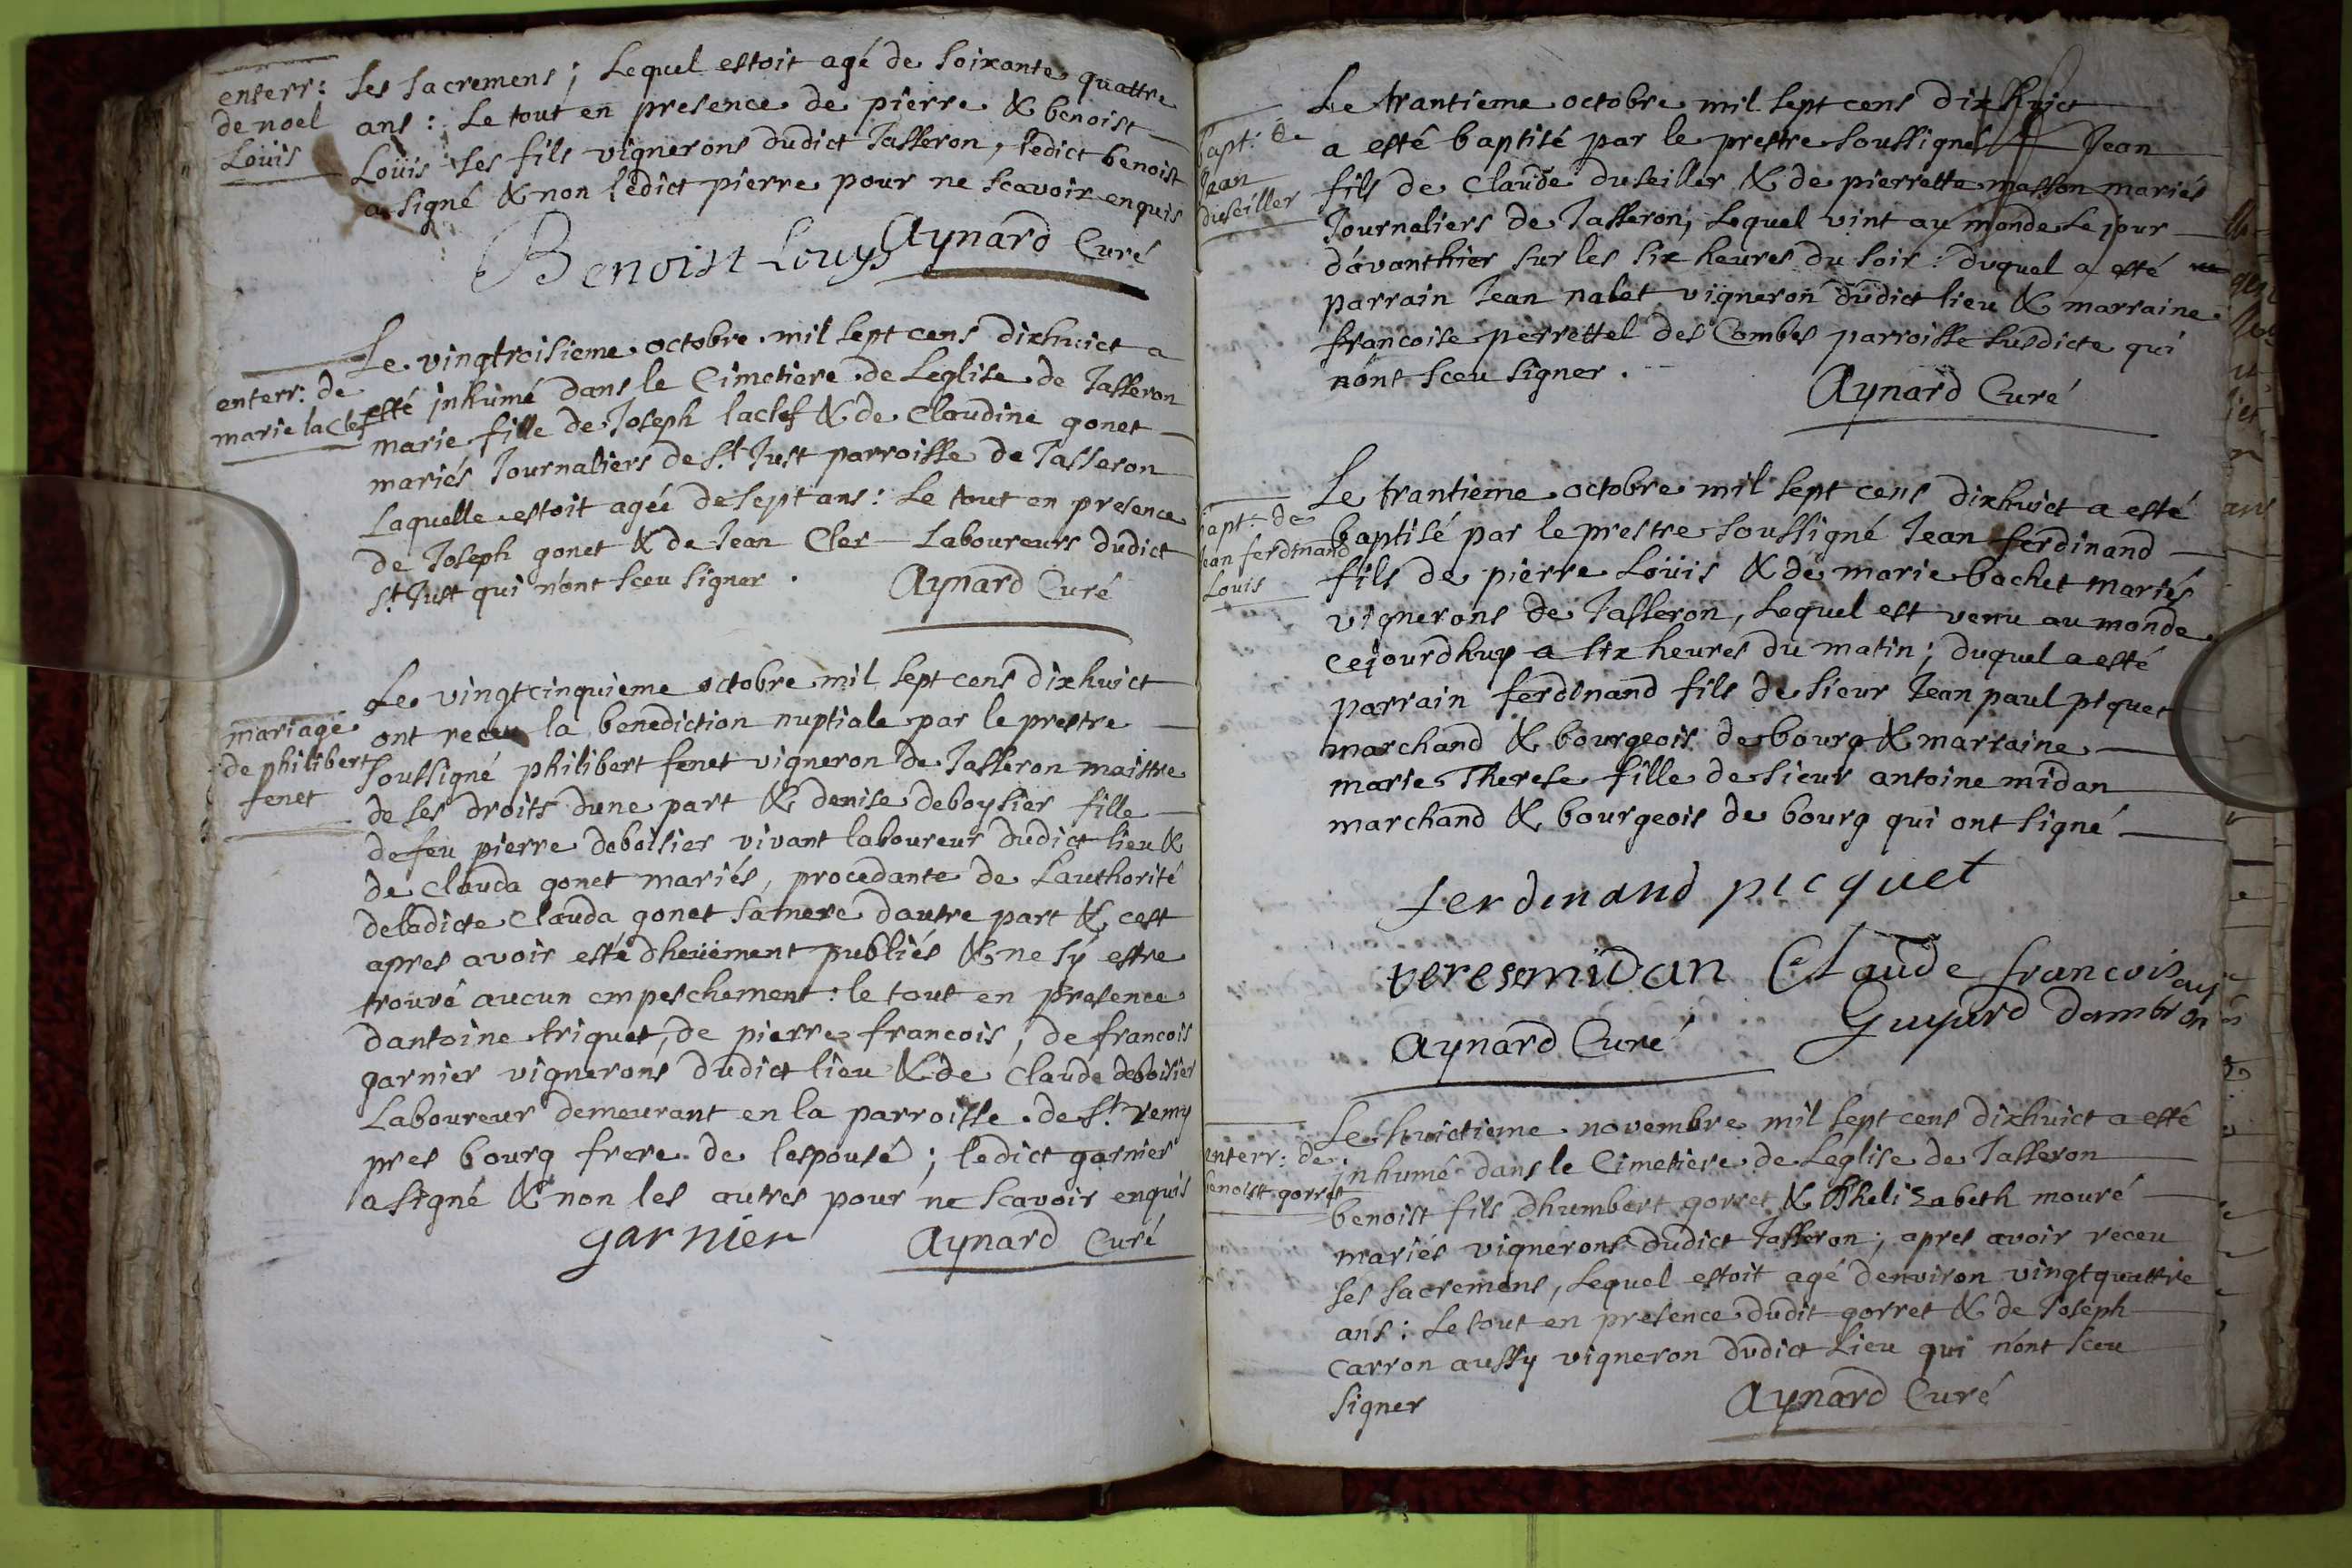 enterr:
de noel
Loüis
ses sacremens; Lequel estoit agé de soixante quattre
ans: Le tout en presence de pierre & benoist
Loüis ses fils vignerons dudict Jasseron, ledict benoist
a signé & non ledict pierre pour ne scavoir enquis
Benoist Louys Aynard Curé
enterr: de
marie laclef
Le vingtroisieme octobre mil sept cens dixhuict a
esté inhumé dans le Cimetiere de Leglise de Jasseron
marie fille de Joseph laclef & de Claudine gonet
mariés Journaliers de St Just parroisse de Jasseron
Laquelle estoit agée de sept ans: Le tout en presence
de Joseph gonet & de Jean Cler Laboureurs dudict
St Just qui n'ont sceu signer. Aynard Curé
mariage
de philibert
fenet
Le vingtcinquieme octobre mil sept cens dixhuict
ont receu la benediction nuptiale par le prestre
soussigné philibert fenet vigneron de Jasseron maistre
de ses droits dune part & denise deboysier fille
de feu pierre deboisier vivant laboureur dudict lieu &
de Clauda gonet mariés, procedante de Lauthorité
deladicte Clauda gonet sa mere dautre part & cest
apres avoir esté dheüement publiés & ne sÿ estre
trouvé aucun empeschement: le tout en presence
dantoine triquet, de pierre francois, de francois
garnier vignerons dudict lieu & de Claude deboisier
Laboureur demeurant en la parroisse de St remy
pres bourg frere de lespouse; ledict garnier
a signé & non les autres pour ne scavoir enquis
garnier Aynard Curé
bapt: de
Jean
duseiller
Le trantieme octobre mil sept cens dixhuict
a esté baptisé par le prestre soussigné Jean
fils de Claude duseiller & de pierrette masson mariés
Journaliers de Jasseron, Lequel vint au monde le jour
d'avanthier sur les six heures du soir: duquel a esté
parrain Jean nalet vigneron dudict lieu & marraine
francoise perrettel des Combes parroisse susdicte qui
n'ont sceu signer.
Aynard Curé
bapt: de
Jean ferdinand
Louis
Le trantieme octobre mil sept cens dixhuict a esté
baptisé par le prestre soussigné Jean ferdinand
fils de pierre Loüis & de marie bachet mariés
vignerons de Jasseron, Lequel est venu au monde
cejourdhuy a six heures du matin; duquel a esté
parrain ferdinand fils de sieur Jean paul piquet
marchand & bourgeois de bourg & marraine
marie Therese fille de sieur antoine midan
marchand & bourgeois de bourg qui ont signé
ferdinand picquet
teresemidan Claude francois
Guyard dambron
Aynard Curé
enterr: de
benoist gorret
Le huictieme novembre mil sept cens dixhuict a esté
inhumé dans le Cimetiere de Leglise de Jasseron
benoist fils dhumbert gorret & helizabeth mouré
mariés vignerons dudict Jasseron; apres avoir receu
ses sacremens, Lequel estoit agé denviron vingtquattre
ans: Le tout en presence dudit gorret & de Joseph
carron aussy vigneron dudict Lieu qui n'ont sceu
signer Aynard Curé